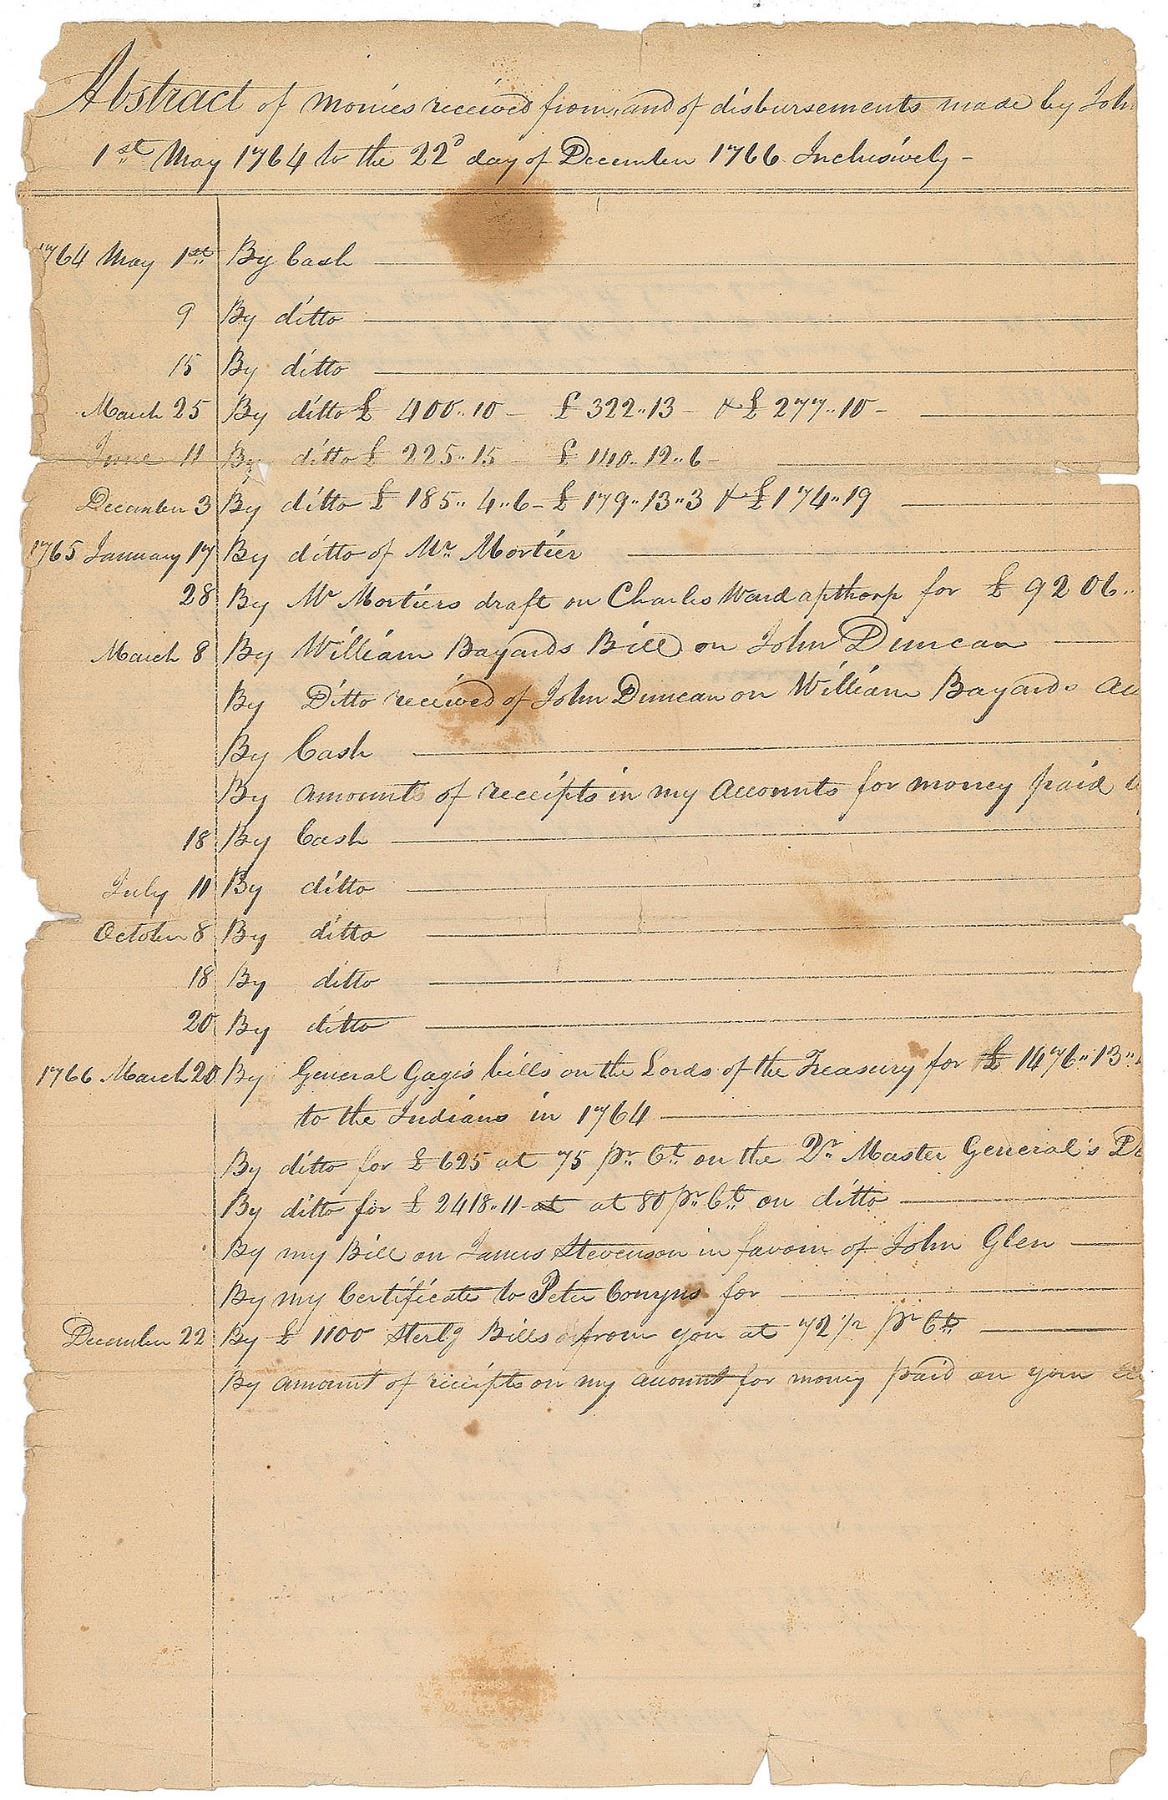 Abstract of monies received from, and of disbursements made by Joh
1st May 1764 to the 22d day of December 1766 Inclusively -
1764 May 1st By Cash
9 By ditto
15 By ditto
March 25 By ditto £ 400..10 - £ 322..13 - & £ 277..10 -
June 11 By ditto £ 225..15 £ 1110..12..6 -
December 3 By ditto £ 185..4..6 - £ 179..13..3 & £ 174..19
1765 January 17 By ditto of Mr. Mortier
28 By Mr Mortiers draft on Charles Ward apthorp for £ 9206..
March 8 By William Bayards Bill on John Duncan
By Ditto received of John Duncan on William Bayards
By Cash
By amounts of receipts in my Accounts for money paid
18 By Cash
July 11 By ditto
October 8 By ditto
18 By ditto
20 By ditto
1766 March 20 By General Gage's bills on the Lords of the Treasury for £ 1476..13..
to the Indians in 1764
By ditto for £ 625 at 75 pr Ct on the Qr Master General's
By ditto for £ 2418..11 at at 80 pr Ct on ditto
By my Bill on James Stevenson in favour of John Glen
By my Certificate to Peter Conyns for
December 22 By £ 1100 Sterlg Bills from you at 72 1/2 pr Ct
By amount of receipts on my account for money paid on your